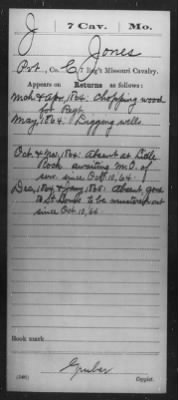 J 7 Cav. Mo.
J Jones
Pvt., Co. C, 7 Reg't Missouri Cavalry.
Appears on Returns as follows:
Mch & Apr, 1864: Chopping wood
for Regt.
May, 1864: Digging wells.
Oct & Nov, 1864: Absent at Little
Rock awaiting M.O. of
serv. since Oct 10, 64.
Dec, 1864 & Jany, 1865: Absent, gone
to St Louis to be mustered out
since Oct 10, 64.
Book mark:
Gruber
(546) Copyist.